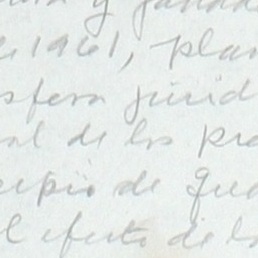 y
1961, plan
sfera jurid
al de los pro
cipio de que
el efecto de lo